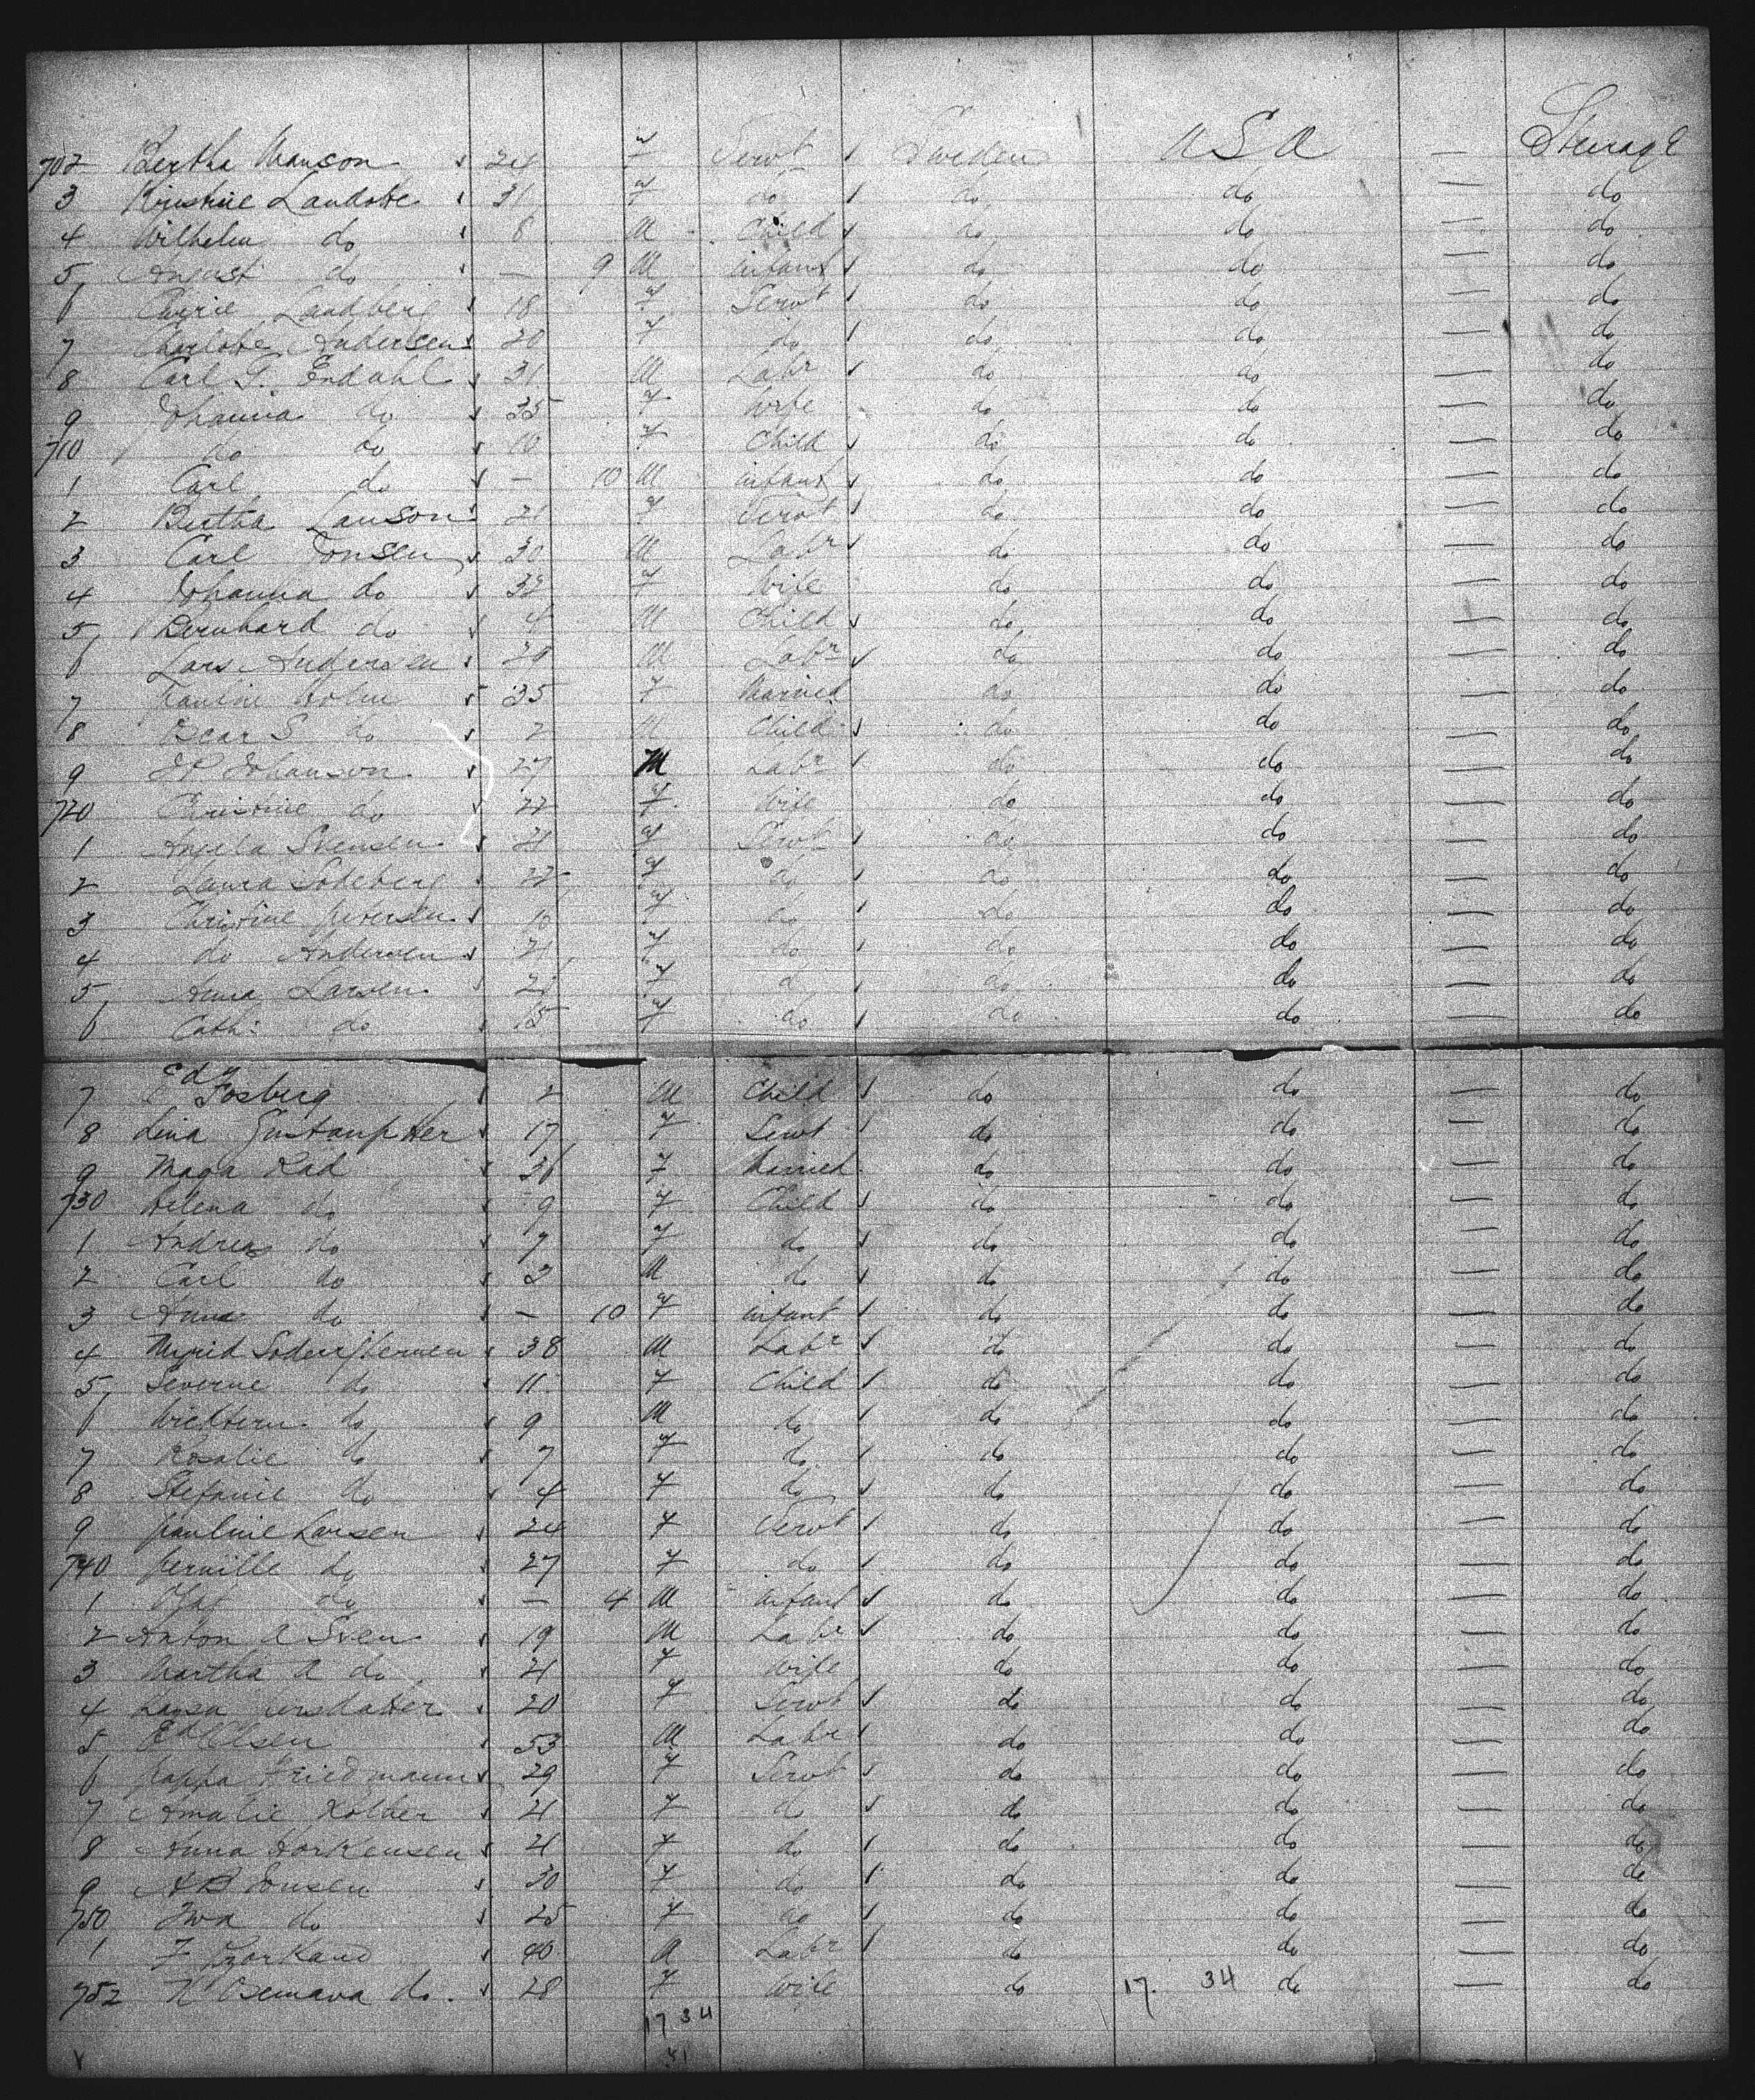 702 Bertha Manson 24 f Servt Sweden USA — Steerage
3 Kristine Landotte 31 f do do do — do
4 Wilhelm do 8 M Child do do — do
5 August do — 9 M infant do do — do
6 Carrie Landberg 18 f Servt do do — do
7 Charlotte Andersen 20 f do do do — do
8 Carl G. Endahl 31 M Labr do do — do
9 Johanna do 35 f Wife do do — do
710 do do 10 f Child do do — do
1 Carl do — 10 M infant do do — do
2 Bertha Lauson 21 f Servt do do — do
3 Carl Jonsen 30 M Labr do do — do
4 Johanna do 32 f Wife do do — do
5 Bernhard do 4 M Child do do — do
6 Lars Andersen 20 M Labr do do — do
7 Pauline Holm 35 f Married do do — do
8 Oscar S do 2 M Child do do — do
9 J P Johanson 27 M Labr do do — do
720 Christine do 22 f Wife do do — do
1 Angela Svensen 21 f Servt do do — do
2 Laura Soteberg 22 f do do do — do
3 Christine Petersen 10 f do do do — do
4 do Andersen 21 f do do do — do
5 Anna Larsen 21 f do do do — do
6 Cath: do 15 f do do do — do
7 Edw Fosberg 2 M Child do do — do
8 Lina Gustaupter 17 f Servt do do — do
9 Maga Rad 36 f Married do do — do
730 Helena do 9 f Child do do — do
1 Andreas do 7 f do do do — do
2 Carl do 2 M do do do — do
3 Anna do — 10 f infant do do — do
4 38 M Labr do do — do
5 Severne do 11 f Child do do — do
6 do 9 M do do do — do
7 Rosalie do 7 f do do do — do
8 Stefanie do 4 f do do do — do
9 Pauline Larsen 24 f Servt do do — do
740 Pernille do 27 f do do do — do
1 do — 4 M infant do do — do
2 Anton A Sven 19 M Labr do do — do
3 Martha A do 21 f Wife do do — do
4 Larsdatter 20 f Servt do do — do
5 Ed Olsen 53 M Labr do do — do
6 Pappa Friedmann 29 f Servt do do — do
7 Amalie Kolber 21 f do do do — do
8 Anna Horkensen 21 f do do do — do
9 A B Jonsen 30 f do do do — do
750 Iwa do 25 f do do do — do
1 F 40 M Labr do do — do
752 N Osemava do. 28 f Wife do 17. 34 do — do
17.34